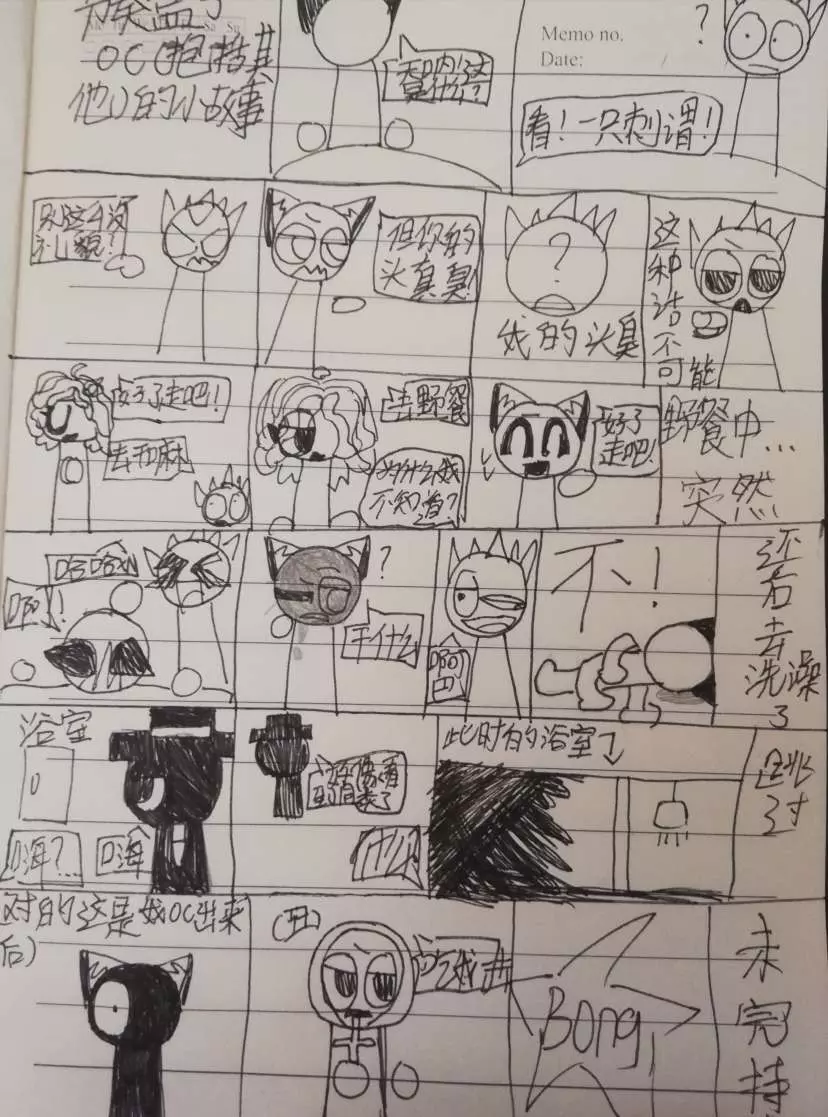 OC(抱括其
他)的小故事
Memo no.
Date:
?
看!一只刺谓!
礼貌!
但你的
头真臭!
?
我的头臭
这
种
话
不
可
能
好了走吧!
去野餐
为什么我
不知道?
好了
走吧!
野餐中...
突然
哈哈
啊!
?
干什么
啊
巴
不!
还
去
洗澡
了
浴室
嗨?...
嗨
什么
此时的浴室
跳
过
对的这是我OC出来
后)
(丑)
吃我
Bong
未
完
持